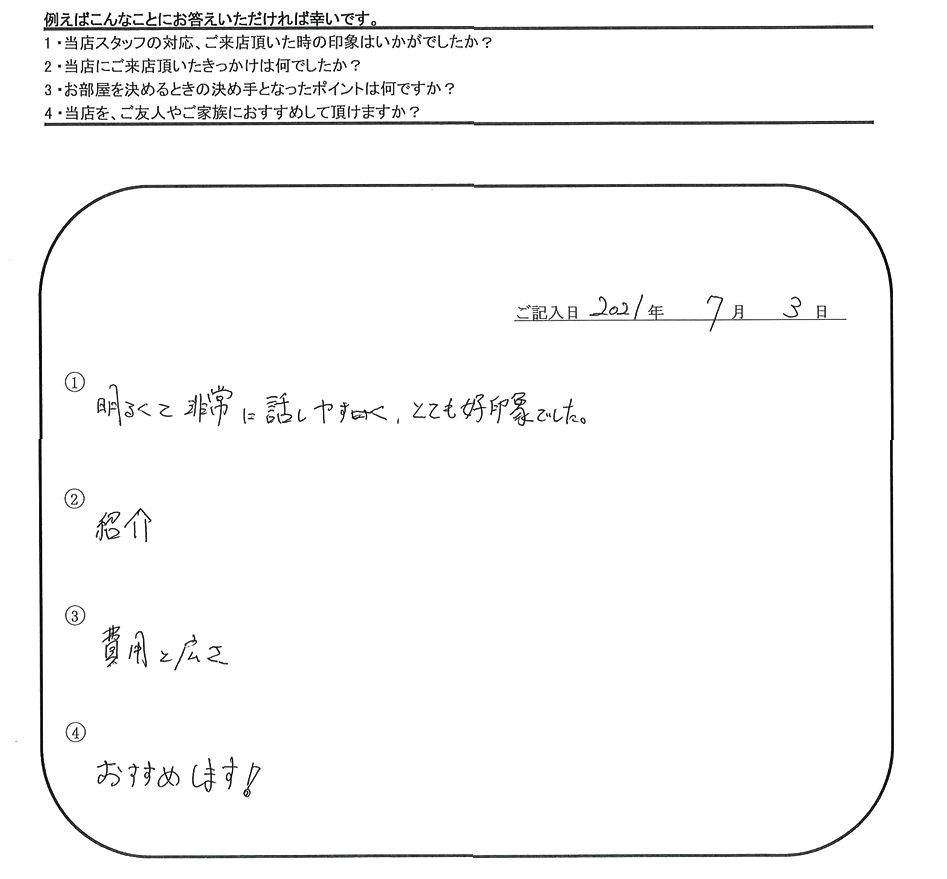 例えばこんなことにお答えいただければ幸いです。
1・当店スタッフの対応、ご来店頂いた時の印象はいかがでしたか?
2・当店にご来店頂いたきっかけは何でしたか?
3・お部屋を決めるときの決め手となったポイントは何ですか?
4・当店を、ご友人やご家族におすすめして頂けますか?
ご記入日 2021年 7月 3日
①
明るくて非常に話しやすく、とても好印象でした。
②
紹介
③
費用と広さ
④
おすすめします!